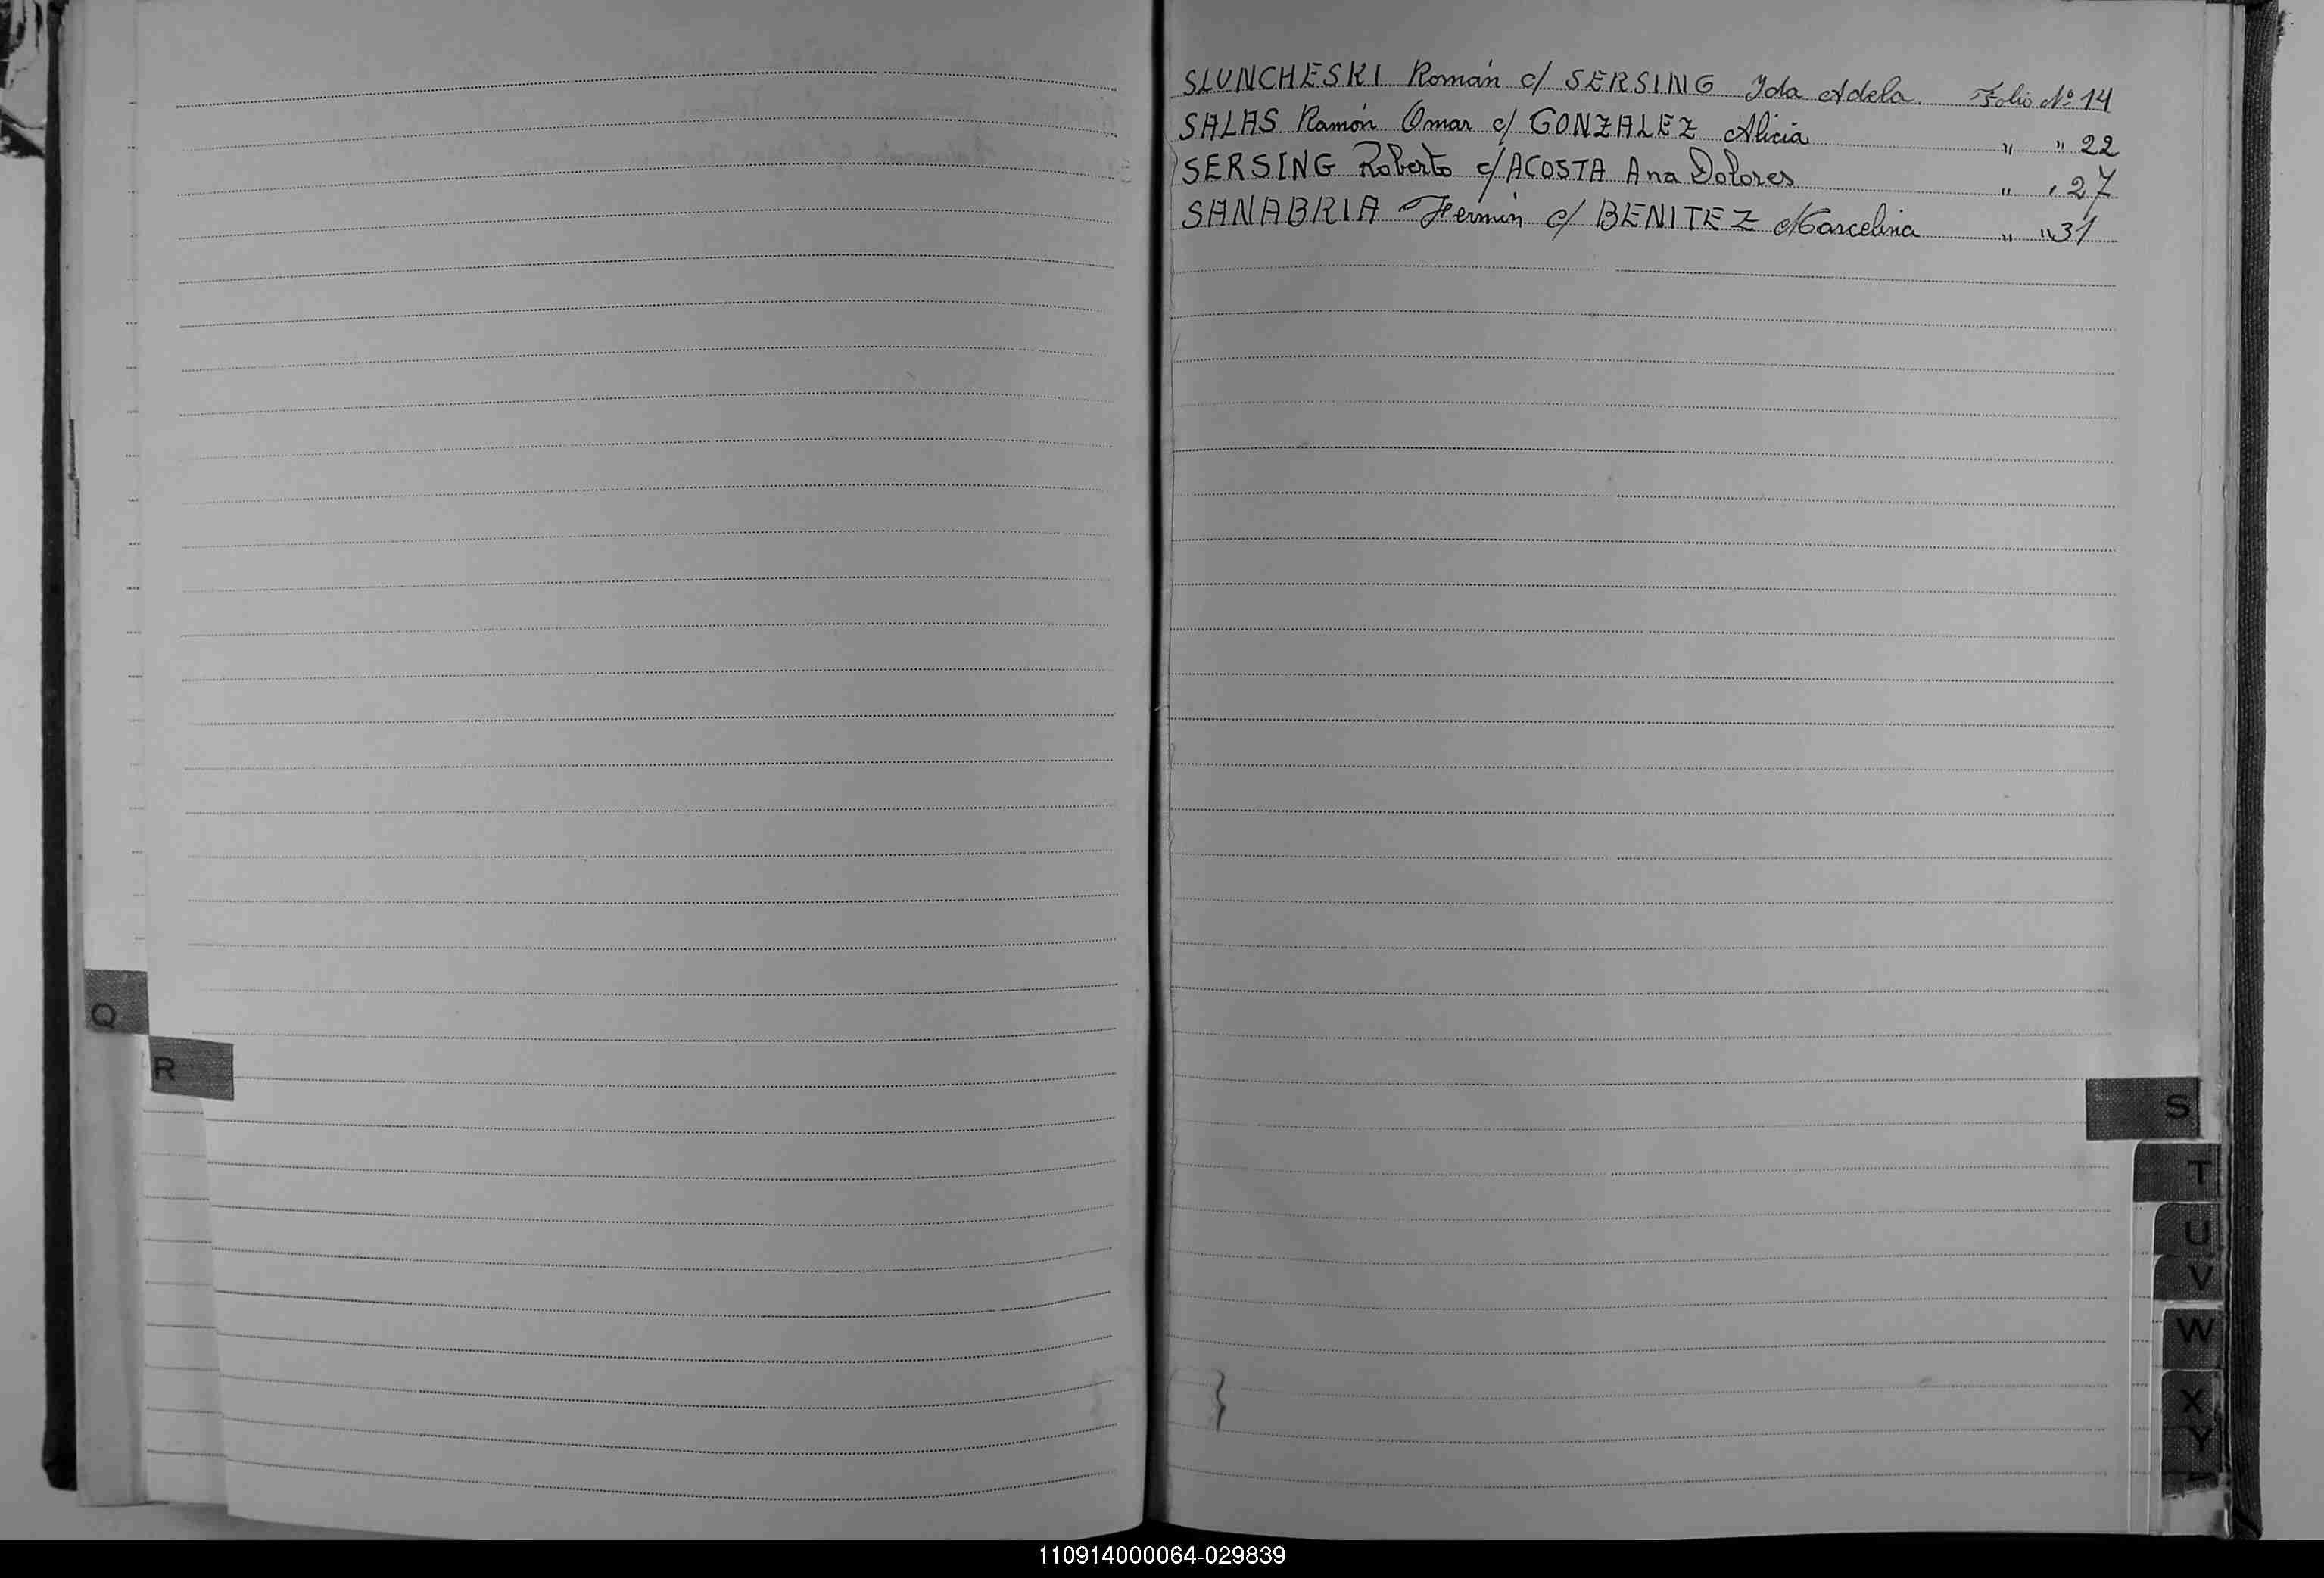 SLUNCHESKI Román c/ SERSING Ida Adela. Folio Nº 14
SALAS Ramón Omar c/ GONZALEZ Alicia " " 22
SERSING Roberto c/ ACOSTA Ana Dolores " " 27
SANABRIA Fermín c/ BENITEZ Marcelina " " 31
Q
R
S
T
U
V
W
X
Y
110914000064-029839